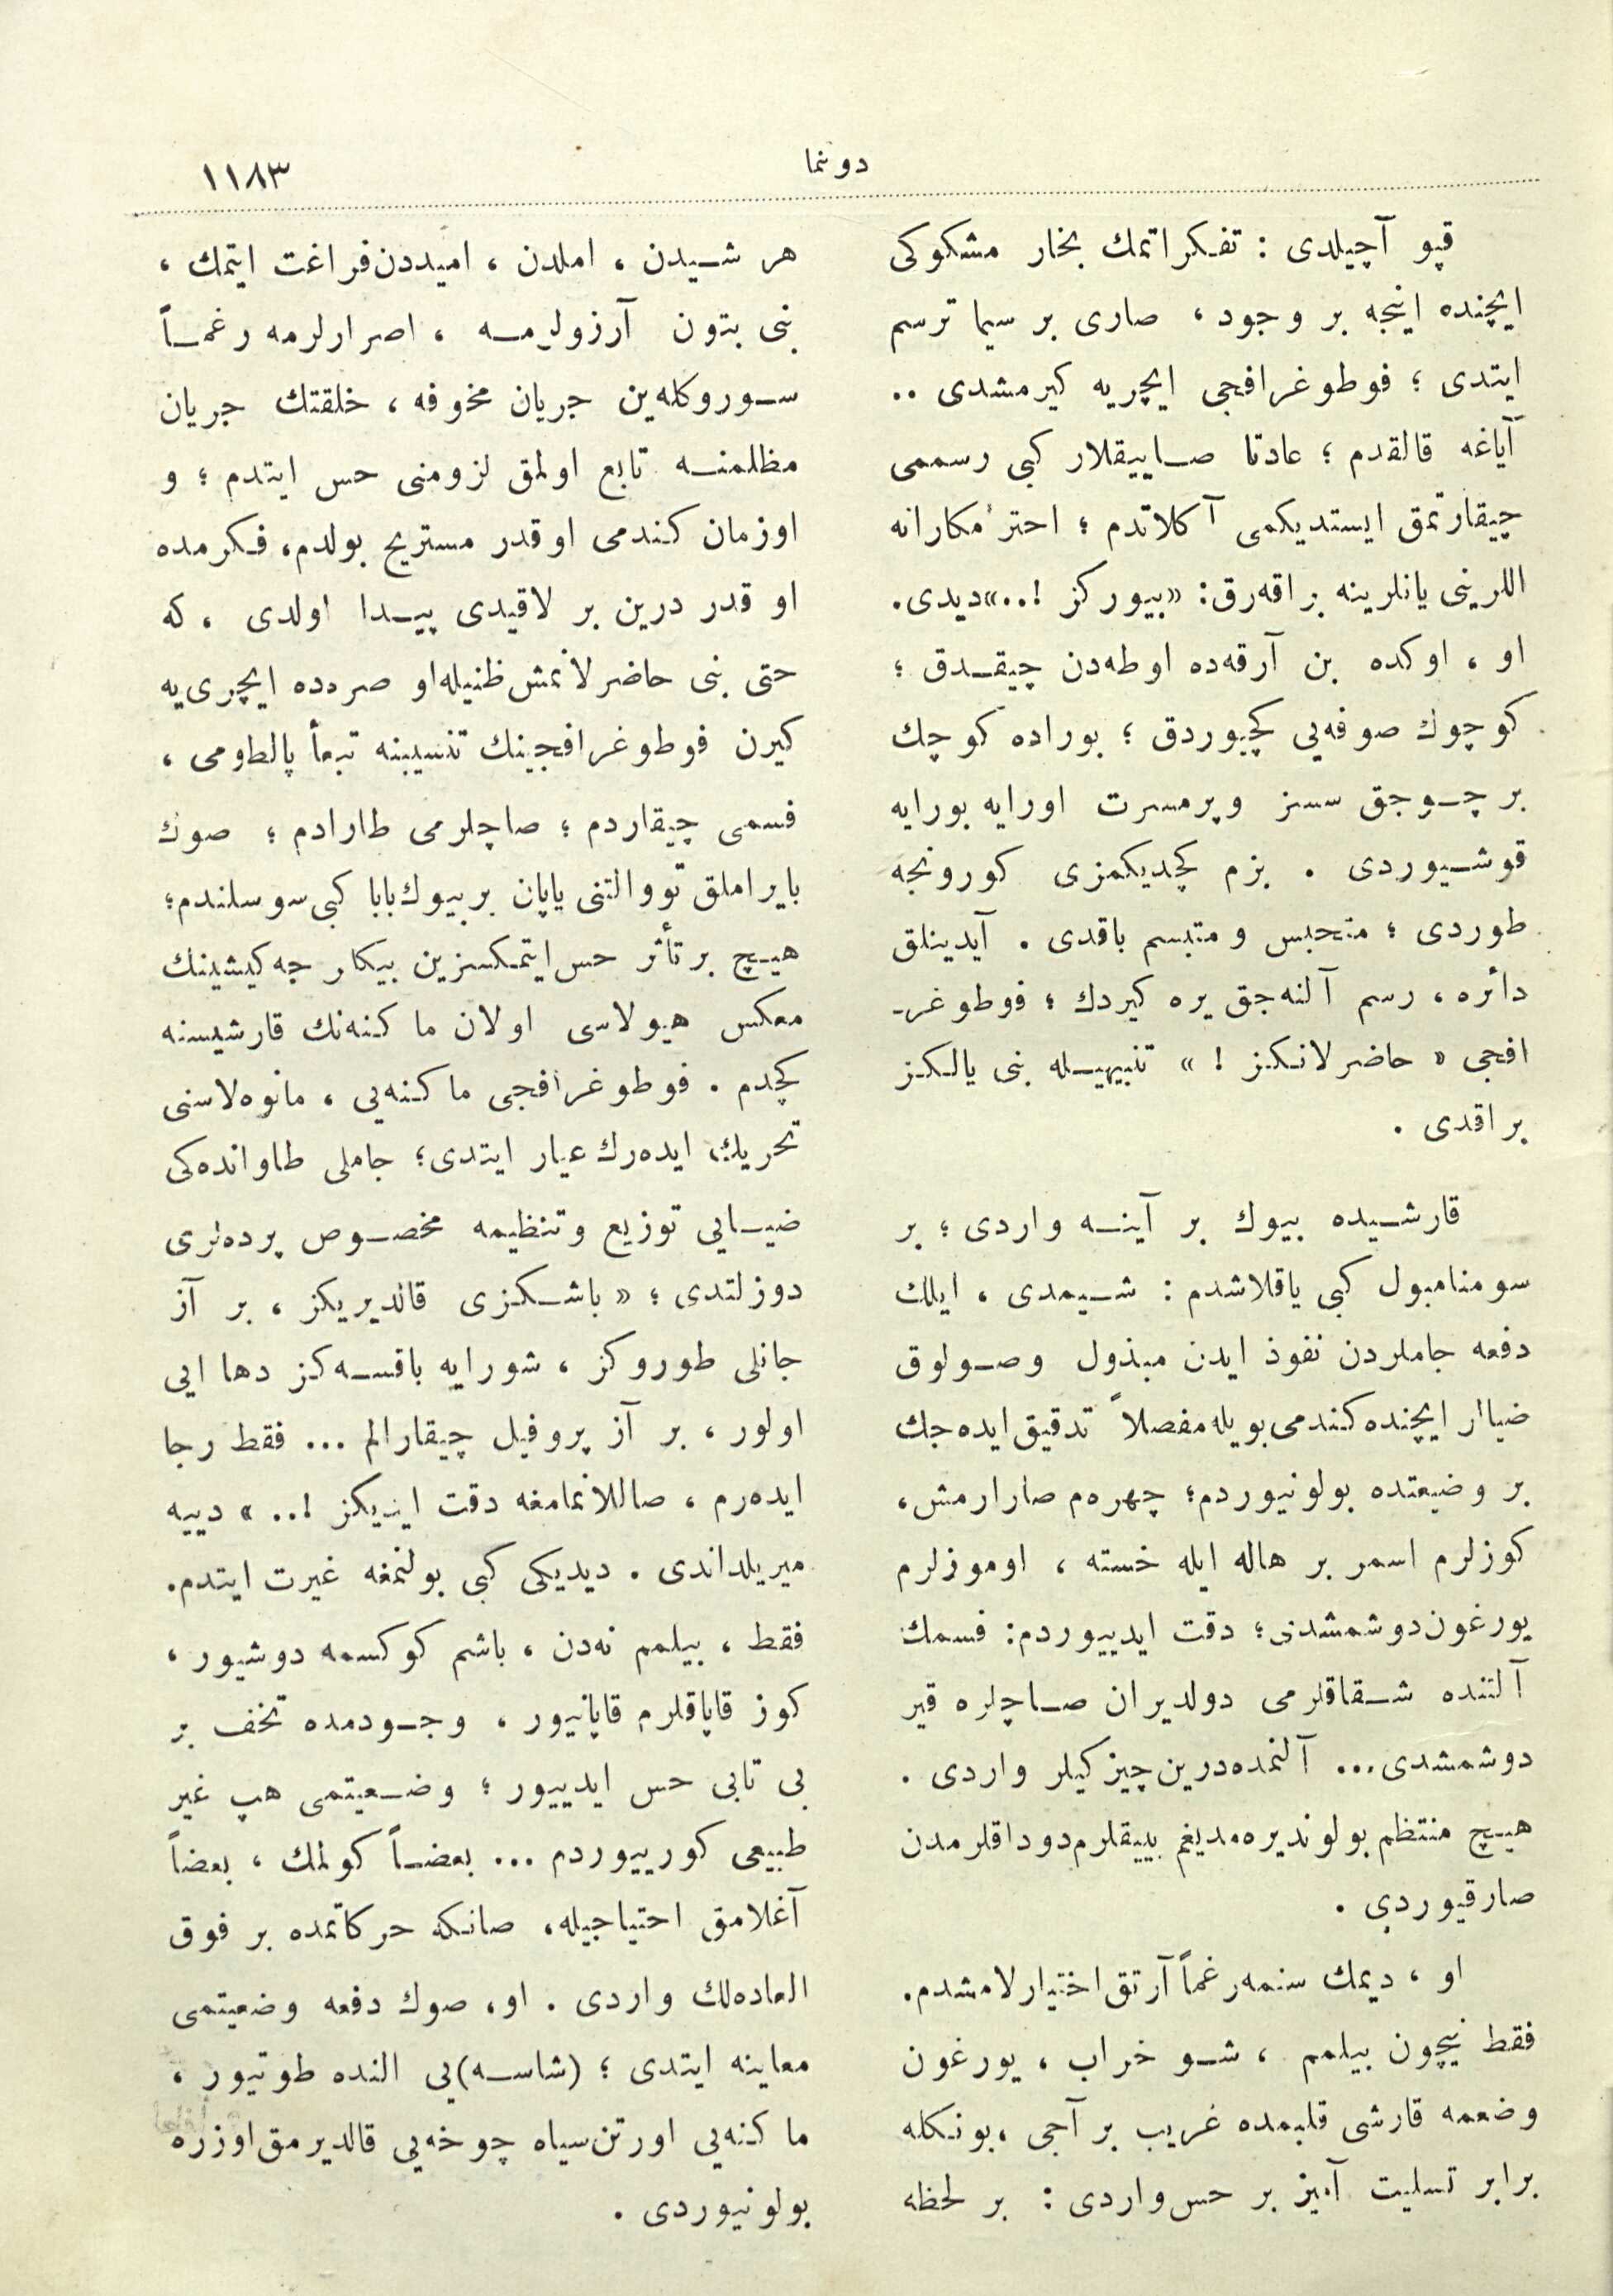 دوننما
١١٨٣
قپو آچیلدی : تفکر اتمك بخار مشکوکی
ایچنده اینجه بر وجود ، صاری بر سیما ترسم
ایتدی ؛ فوطوغرافجی ایچریه کیرمشدی ..
آیاغه قالقدم ؛ عادتا صاییقلار کبی رسممی
چیقارتمق ایستدیکمی آکلاتدم ؛ احترامکارانه
اللرینی یانلرینه براقه‌رق : «بیورکز !..» دیدی .
او ، اوکده بن آرقه‌ده اوطه‌دن چیقدق ؛
کوچوك صوفه‌یی کچیوردق ؛ بوراده کوچك
بر چوجق سسز وپرمسرت اورایه بورایه
قوشیوردی . بزم کچدیکمزی کورونجه
طوردی ؛ متجسس و متبسم باقدی . آیدینلق
دائره ، رسم آلنه‌جق یره کیردك ؛ فوطوغر-
افجی « حاضرلانکز ! » تنبیهیله بنی یالکز
براقدی .
قارشیده بیوك بر آینه واردی ؛ بر
سومنامبول کبی یاقلاشدم : شیمدی ، ایلك
دفعه جاملردن نفوذ ایدن مبذول وصولوق
ضیالر ایچنده کندمی بویله مفصلاً تدقیق ایده‌جك
بر وضیعتده بولونیوردم ؛ چهره‌م صارارمش ،
کوزلرم اسمر بر هاله ایله خسته ، اوموزلرم
یورغون دوشمشدی ؛ دقت ایدییوردم : فسمك
آلتنده شقاقلرمی دولدیران صاچلره قیر
دوشمشدی ... آلنمده درین چیزکیلر واردی .
هیچ منتظم بولوندیره‌مدیغم بییقلرم دوداقلرمدن
صارقیوردی .
او ، دیمك سنمه رغماً آرتق اختیارلامشدم .
فقط نیچون بیلمم ، شو خراب ، یورغون
وضعمه قارشی قلبمده غریب بر آجی ، بونکله
برابر تسلیت آمیز بر حس واردی : بر لحظه
هر شیدن ، املدن ، امیددن فراغت ایتمك ،
بنی بتون آرزولرمه ، اصرارلرمه رغماً
سوروکله‌ین جریان مخوفه ، خلقتك جریان
مظلمنه تابع اولمق لزومنی حس ایتدم ؛ و
اوزمان کندمی اوقدر مستریح بولدم ، فکرمده
او قدر درین بر لاقیدی پیدا اولدی ، که
حتی بنی حاضرلانمش ظنیله او صرده‌ ایچری‌یه
کیرن فوطوغرافجینك تنسیبنه تبعاً پالطومی ،
فسمی چیقاردم ؛ صاچلرمی طارادم ؛ صوك
بایراملق تووالتنی یاپان بر بیوك بابا کبی سوسلندم ؛
هیچ بر تأثر حس ایتمکسزین بیکار جه کیشینك
معکس هیولاسی اولان ماکنه‌نك قارشیسنه
کچدم . فوطوغرافجی ماکنه‌یی ، مانوه‌لاسنی
تحریك ایده‌رك عیار ایتدی ؛ جاملی طاوانده‌کی
ضیایی توزیع وتنظیمه مخصوص پرده‌لری
دوزلتدی ؛ « باشکزی قالدیریکز ، بر آز
جانلی طوروکز ، شورایه باقسه‌کز دها ایی
اولور ، بر آز پروفیل چیقارالم ... فقط رجا
ایده‌رم ، صاللانمامغه دقت ایدیکز !.. » دییه
میریلداندی . دیدیکی کبی بولنمغه غیرت ایتدم .
فقط ، بیلمم نه‌دن ، باشم کوکسمه دوشیور ،
کوز قاپاقلرم قاپانیور ، وجودمده تحف بر
بی تابی حس ایدییور ؛ وضعیتمی هپ غیر
طبیعی کورییوردم ... بعضاً کولمك ، بعضاً
آغلامق احتیاجیله ، صانکه حرکاتمده بر فوق
العاده‌لك واردی . او ، صوك دفعه وضعیتمی
معاینه ایتدی ؛ (شاسه)یی النده طوتیور ،
ماکنه‌یی اورتن سیاه چوخه‌یی قالدیرمق اوزره
بولونیوردی .